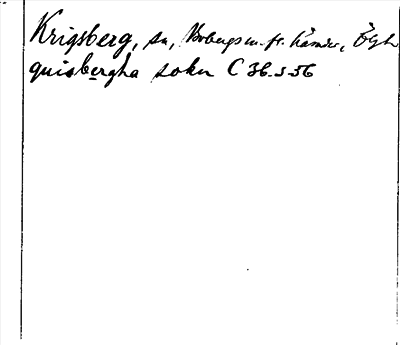 Krigsberg, sn, Norbergs m. fr. härader, Ögl
quisbergha sokn C 36. s 56